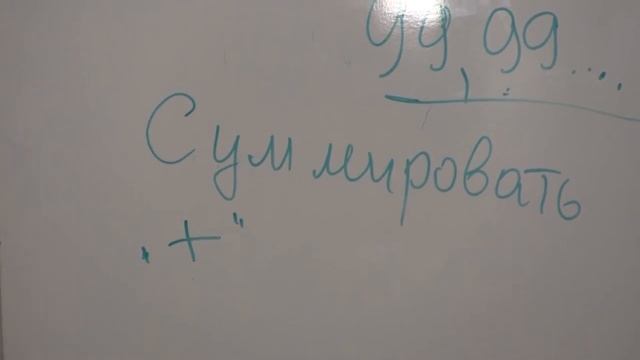 99,99....
Суммировать
„+"